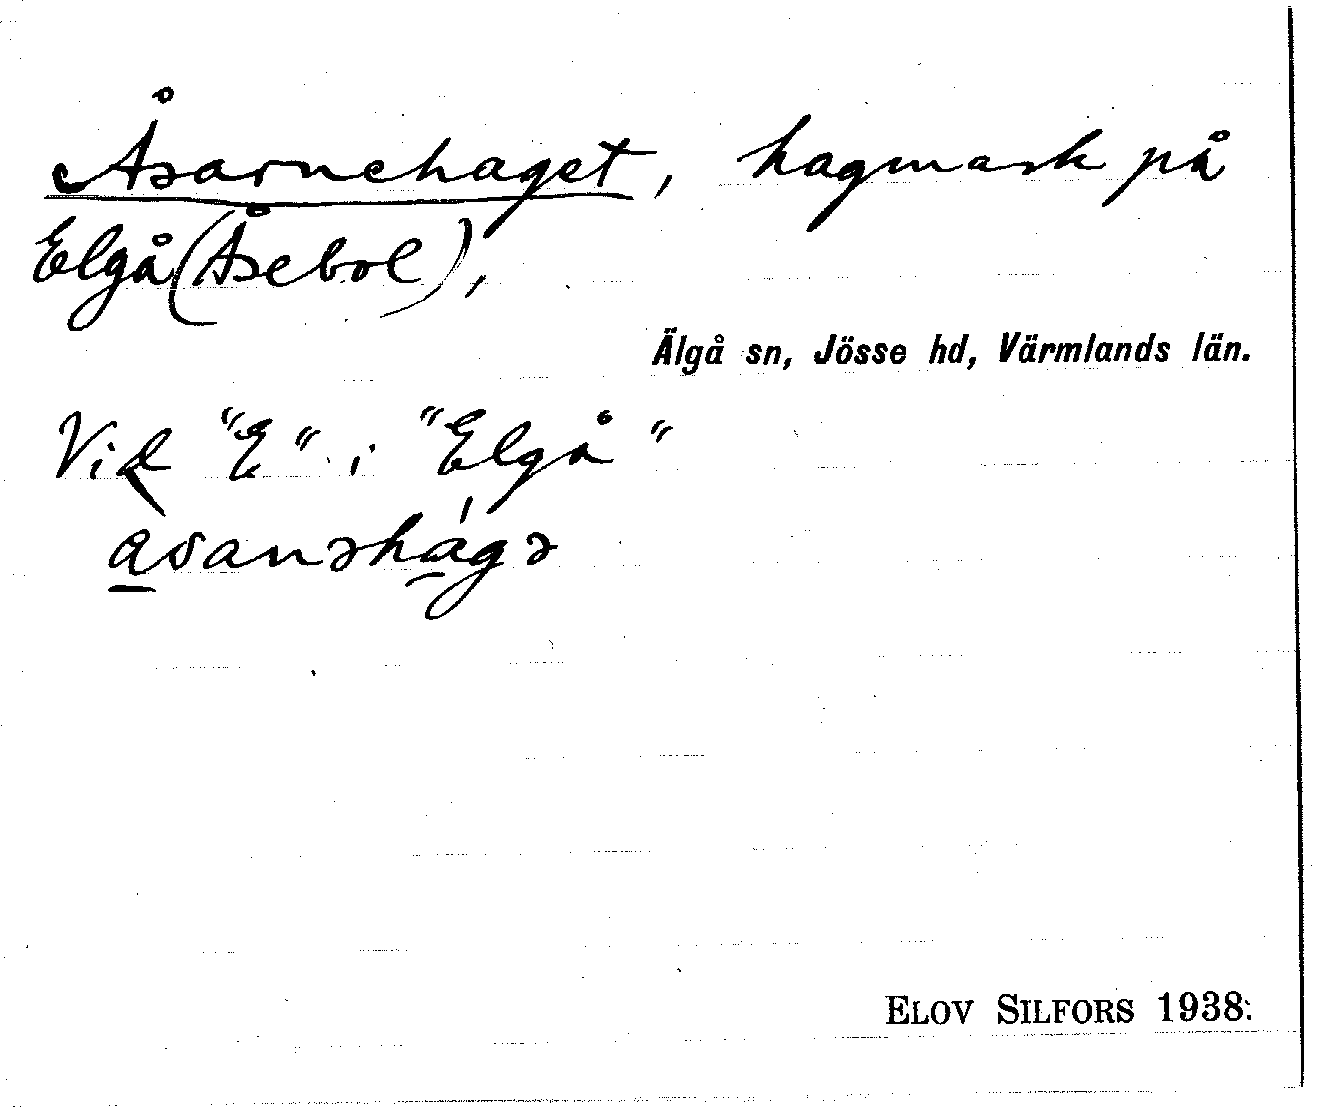 Åsarnehaget, hagmark på
Elgå (Åsebol),
Älgå sn, Jösse hd, Värmlands län.
Vid "E" i "Elgå"
ELOV SILFORS 1938.